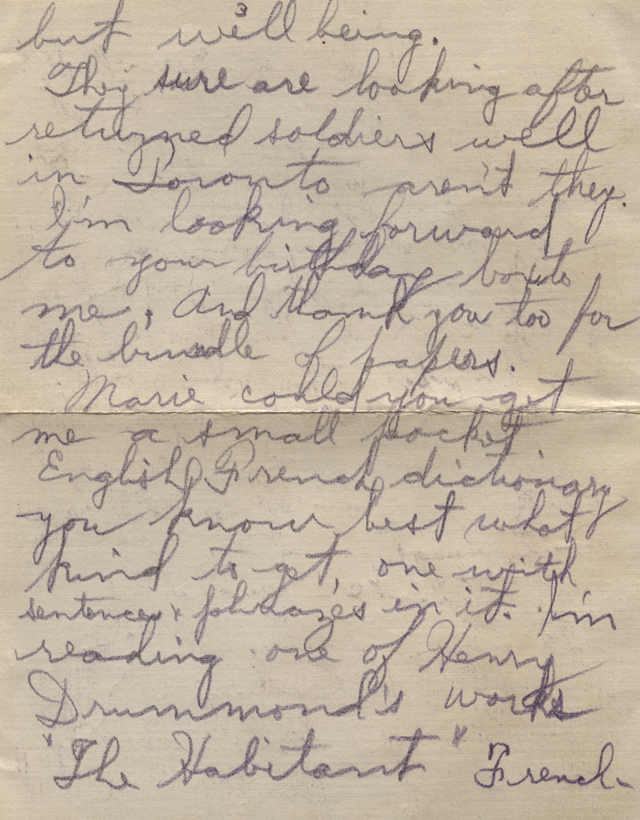 3
but well being.
They sure are looking after
returned soldiers well
in Toronto aren't they.
I'm looking forward
to your birthday box to
me, And thank you too for
the bundle of papers.
Marie could you get
me a small pocket
English French dictionary
you know best what
kind to get, one with
sentences & phrazes in it. I'm
reading one of Henry
Drummond's works
"The Habitant" French